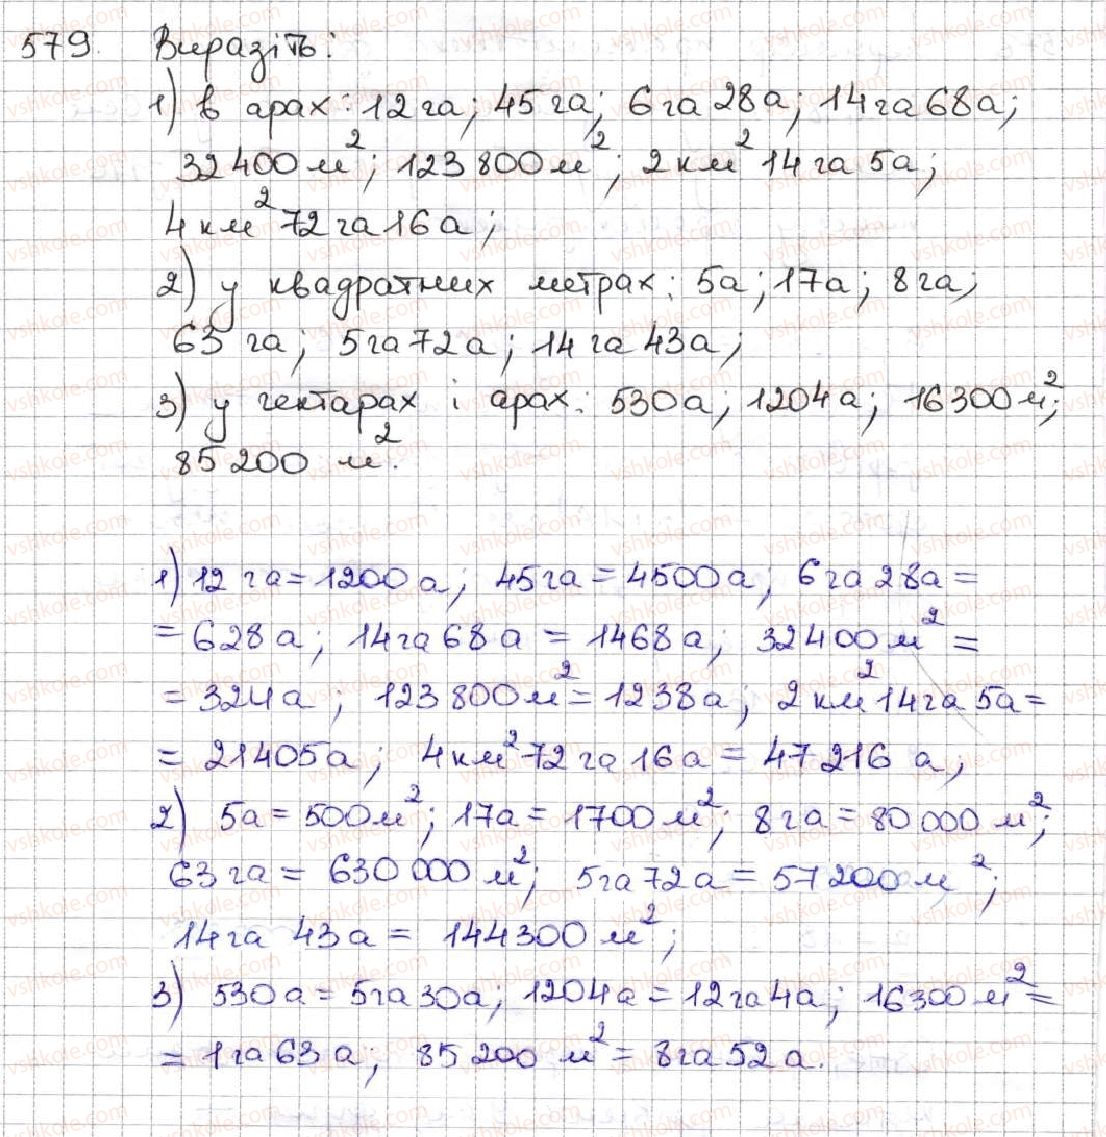 579. Виразіть:
1) в арах: 12 га; 45 га; 6 га 28 а; 14 га 68 а;
32 400 м²; 123 800 м²; 2 км² 14 га 5 а;
4 км² 72 га 16 а;
2) у квадратних метрах: 5 а; 17 а; 8 га;
63 га; 5 га 72 а; 14 га 43 а;
3) у гектарах і арах: 530 а; 1204 а; 16 300 м²;
85 200 м².
1) 12 га = 1200 а; 45 га = 4500 а; 6 га 28 а =
= 628 а; 14 га 68 а = 1468 а; 32 400 м² =
= 324 а; 123 800 м² = 1238 а; 2 км² 14 га 5 а =
= 21405 а; 4 км² 72 га 16 а = 47 216 а;
2) 5 а = 500 м²; 17 а = 1700 м²; 8 га = 80 000 м²;
63 га = 630 000 м²; 5 га 72 а = 57 200 м²;
14 га 43 а = 144300 м²;
3) 530 а = 5 га 30 а; 1204 а = 12 га 4 а; 16 300 м² =
= 1 га 63 а; 85 200 м² = 8 га 52 а.
vshkole.com